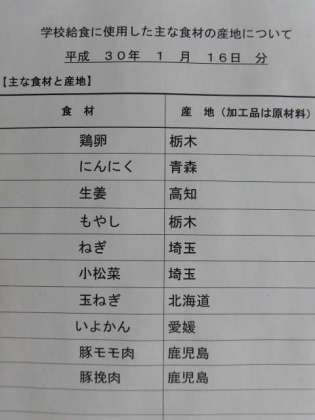 学校給食に使用した主な食材の産地について
平成 30年 1 月 16日 分
【主な食材と産地】
食 材 産 地（加工品は原材料）
鶏卵 栃木
にんにく 青森
生姜 高知
もやし 栃木
ねぎ 埼玉
小松菜 埼玉
玉ねぎ 北海道
いよかん 愛媛
豚モモ肉 鹿児島
豚挽肉 鹿児島